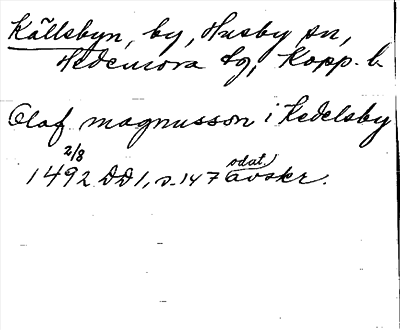 Källsbyn, by, Husby sn,
Hedemora tg, Kopp. l.
Olof magnusson i Kedelsby
2/8 odat.)
1492 DD1, s. 147 avskr.